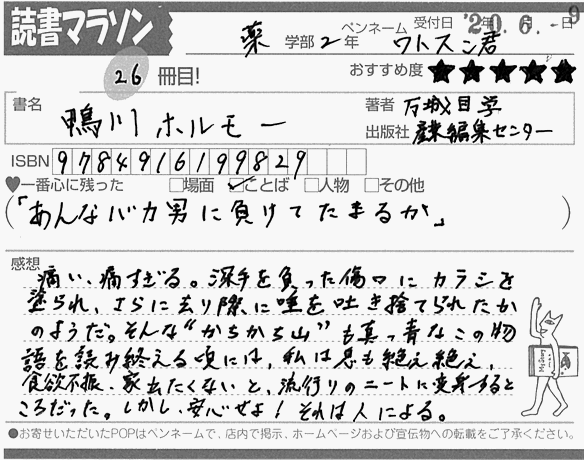 読書マラソン
薬 学部 2 年 ペンネーム ワトスン君 受付日 '20.6.-9
26 冊目! おすすめ度 ★★★★★
書名 鴨川ホルモー 著者 万城目学
出版社 産業編集センター
ISBN 9784916199829
♥一番心に残った □場面 ☑ことば □人物 □その他
(「あんなバカ男に負けてたまるか」)
感想
痛い、痛すぎる。深手を負った傷口にカラシを
塗られ、さらに去り際に唾を吐き捨てられたか
のようだ。そんな“かちかち山”も真っ青なこの物
語を読み終える頃には、私は息も絶え絶え、
食欲不振、家出たくないと、流行りのニートに変身すると
ころだった。しかし、安心せよ! それは人による。
●お寄せいただいたPOPはペンネームで、店内で掲示、ホームページおよび宣伝物への転載をご了承ください。